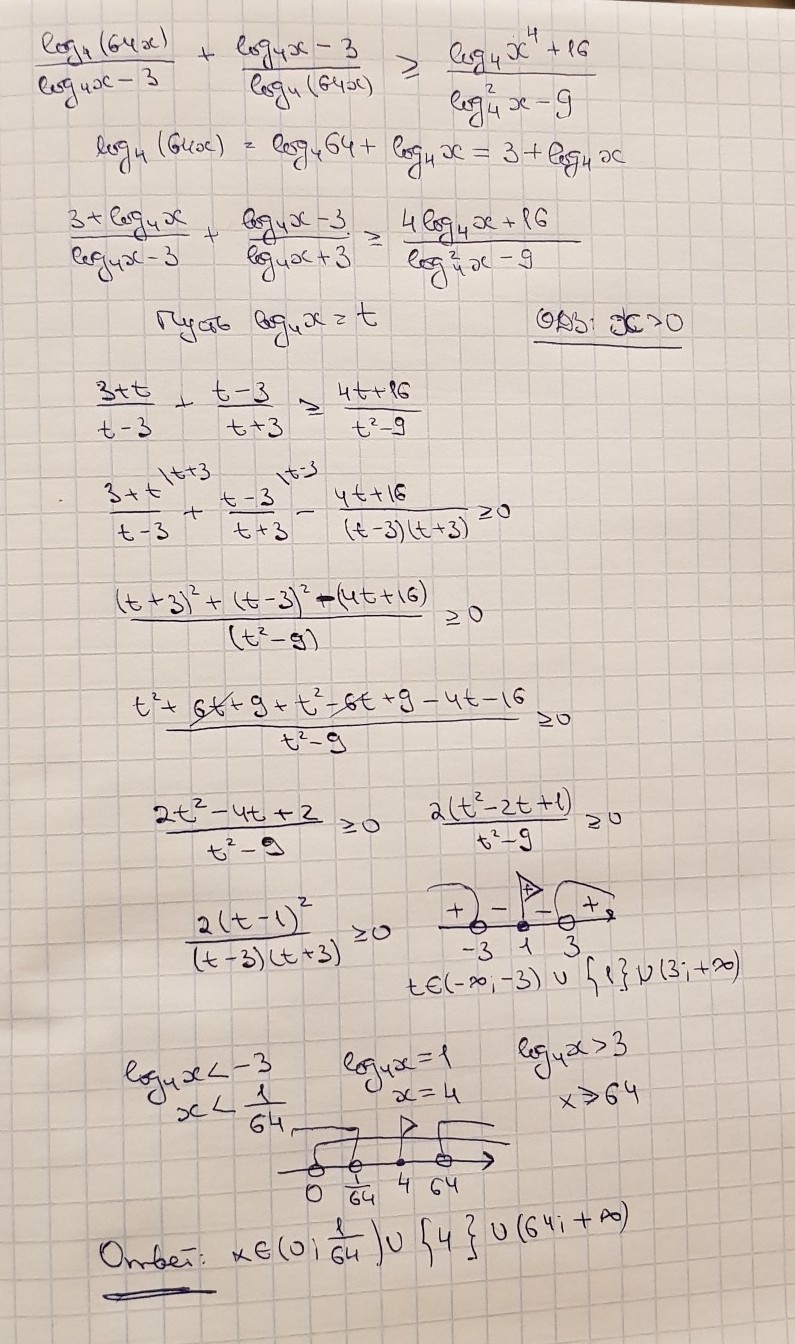 log₄(64x)/(log₄x − 3) + (log₄x − 3)/log₄(64x) ≥ (log₄x⁴ + 16)/(log₄²x − 9)
log₄(64x) = log₄64 + log₄x = 3 + log₄x
(3 + log₄x)/(log₄x − 3) + (log₄x − 3)/(log₄x + 3) ≥ (4log₄x + 16)/(log₄²x − 9)
Пусть log₄x = t ОДЗ: x > 0
(3+t)/(t−3) + (t−3)/(t+3) ≥ (4t+16)/(t²−9)
(3+t)/(t−3) \t+3 + (t−3)/(t+3) \t−3 − (4t+16)/((t−3)(t+3)) ≥ 0
((t+3)² + (t−3)² − (4t+16))/(t²−9) ≥ 0
(t² + 6t + 9 + t² − 6t + 9 − 4t − 16)/(t²−9) ≥ 0
(2t² − 4t + 2)/(t² − 9) ≥ 0 2(t² − 2t + 1)/(t² − 9) ≥ 0
2(t−1)²/((t−3)(t+3)) ≥ 0 + − − +
−3 1 3
t∈(−∞; −3) ∪ {1} ∪ (3; +∞)
log₄x < −3 log₄x = 1 log₄x > 3
x < 1/64 x = 4 x > 64
0 1/64 4 64
Ответ: x∈(0; 1/64) ∪ {4} ∪ (64; +∞)